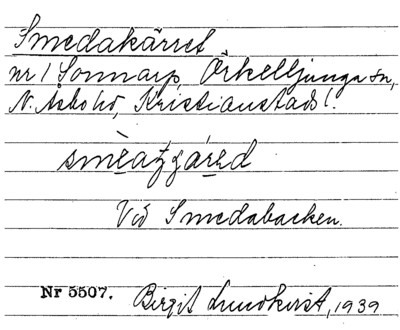 Smedakärret
nr 1 Sonnarp Örkelljunga sn,
N. Åsbo hd, Kristianstads l.
Vid Smedabacken.
Nr 5507. Birgit Lundkvist, 1939